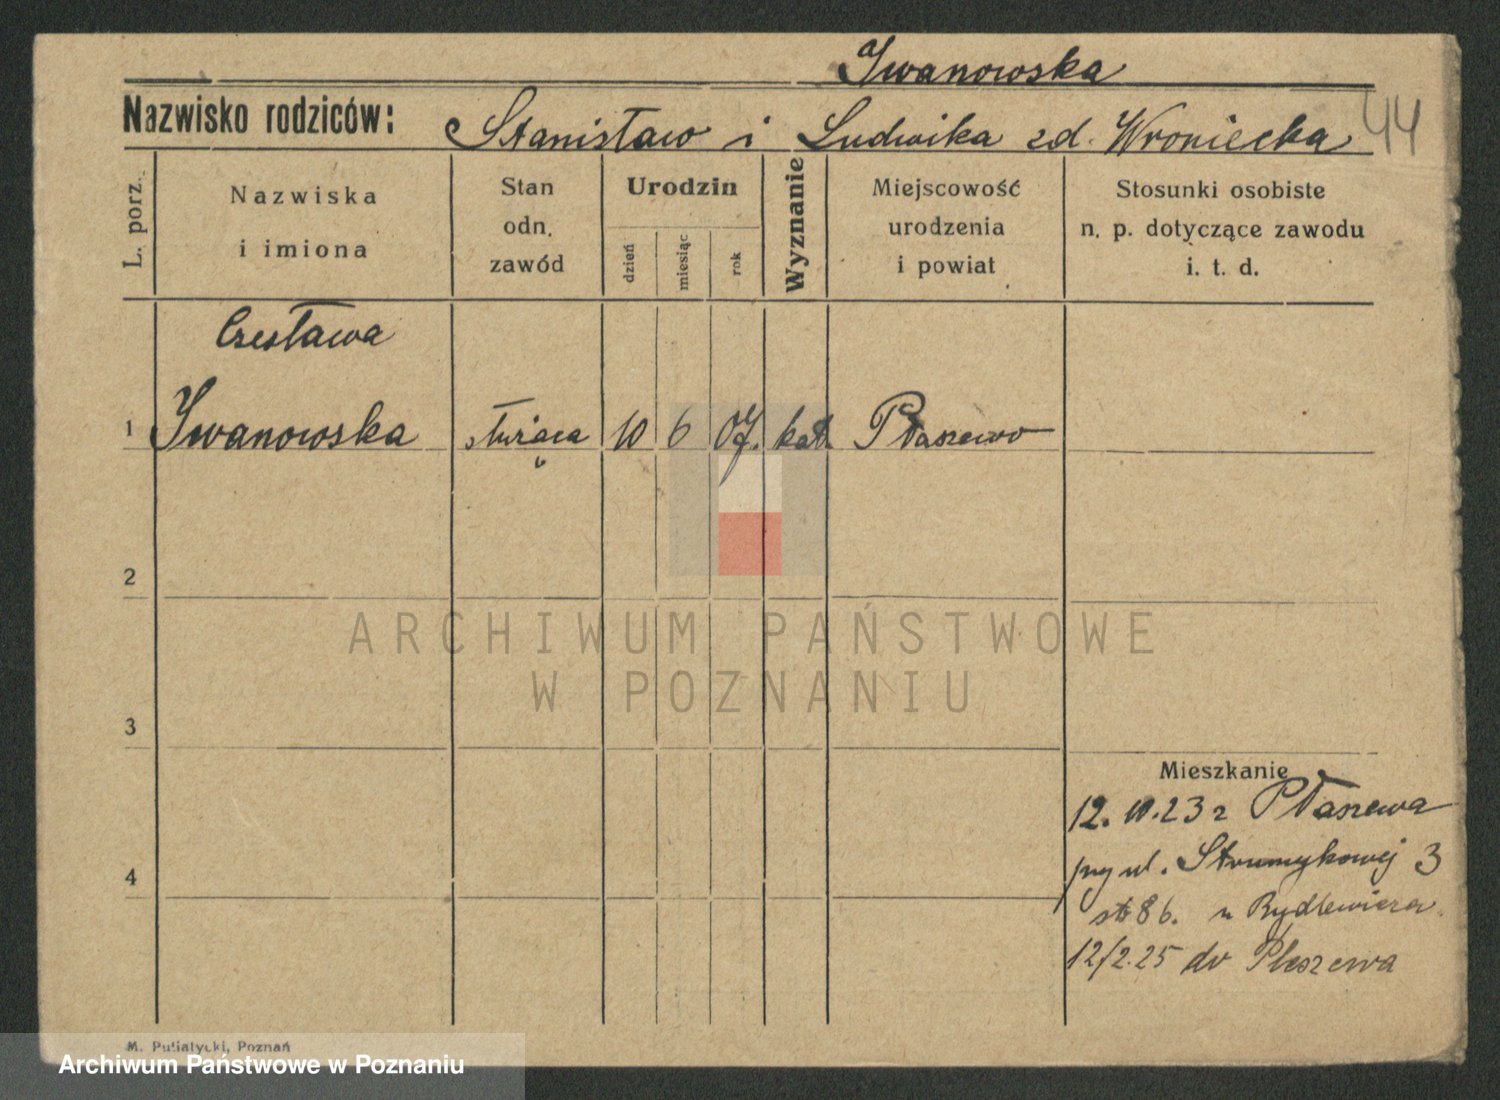 Iwanowska
Nazwisko rodziców: Stanisław i Ludwika zd. Wroniecka 44
L. porz. Nazwiska i imiona Stan odn. zawód Urodzin dzień miesiąc rok Wyznanie Miejscowość urodzenia i powiat Stosunki osobiste n. p. dotyczące zawodu i. t. d.
Czesława
1 Iwanowska służąca 10 6 07. kat. Ptaszewo
2
ARCHIWUM PAŃSTWOWE
W POZNANIU
3
Mieszkanie
12. 10. 23 z Ptaszewa
przy ul. Strumykowej 3
4
u Rydlewicza
12/2.25 do Pleszewa
M. Putiatycki, Poznań
Archiwum Państwowe w Poznaniu